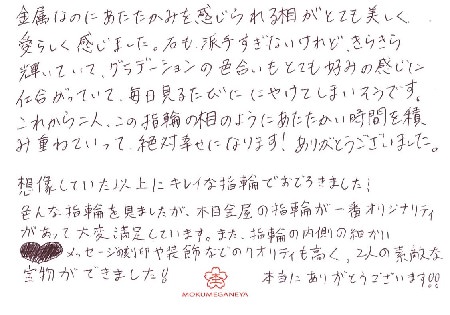 金属なのにあたたかみを感じられる相がとても美しく
愛らしく感じました。石も、派手すぎないけれど、きらきら
輝いていて、グラデーションの色合いもとても好みの感じに
仕合がっていて、毎日見るたびににやけてしまいそうです。
これから二人、この指輪の相のようにあたたかい時間を積
み重ねていって、絶対幸せになります!ありがとうございました。
想像していた以上にキレイな指輪でおどろきました!
色んな指輪を見ましたが、木目金屋の指輪が一番オリジナリティ
があって大変満足しています。また、指輪の内側の細かい
メッセージ刻印や装飾などのクオリティも高く、2人の素敵な
宝物ができました!! 本当にありがとうございます!!
MOKUMEGANEYA